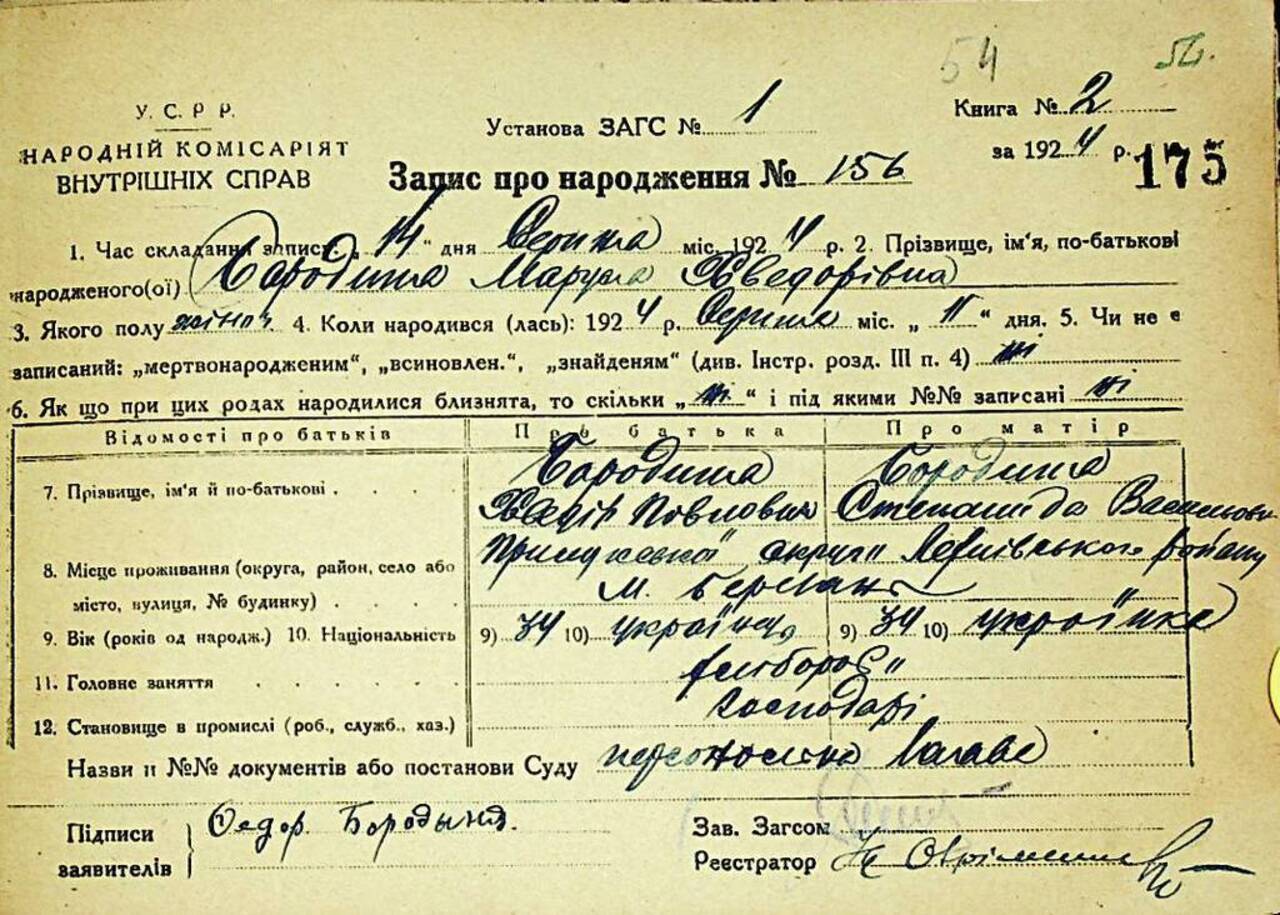 54 54.
У. С. Р Р.
НАРОДНІЙ КОМІСАРІЯТ
ВНУТРІШНІХ СПРАВ
Установа ЗАГС № 1
Книга № 2
за 1924 р.
175
Запис про народження № 156
1. Час складання запису: „14" дня Серпня міс. 1924 р. 2. Прізвище, ім'я, по-батькові
народженого(ої) Бародиня Маруся Хведорівна
3. Якого полу жіноч. 4. Коли народився (лась): 1924 р. Серпня міс. „11" дня. 5. Чи не є
записаний: „мертвонародженим", „всиновлен.", „знайденям" (див. Інстр. розд. III п. 4) ні
6. Як що при цих родах народилися близнята, то скільки „ні" і під якими №№ записані ні
Відомості про батьків Про батька Про матір
7. Прізвище, ім'я й по-батькові . . . . Бародиня Бородиня
Павлович Степанида Васильовн
8. Місце проживання (округа, район, село або Прилуської округи району
місто, вулиця, № будинку) . . . . м.
9. Вік (років од народж.) 10. Національність 9) 34 10) українец 9) 34 10) українка
11. Головне заняття . . . . . хлібороб"
12. Становище в промислі (роб., служб., хаз.) господарі
Назви й №№ документів або постанови Суду
Підписи
заявителів
Федор. Бородыня.
Зав. Загсом
Реєстратор